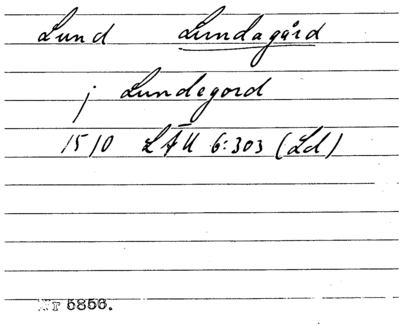 Lund Lundagård
j Lundegord
1510 LÄU 6:303 (Ld)
Nr 5856.